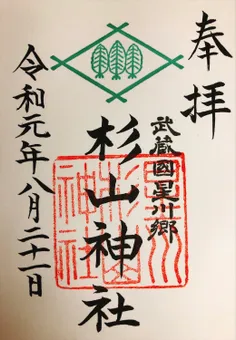 奉拝
武蔵國星川郷
杉山神社
令和元年八月二十一日